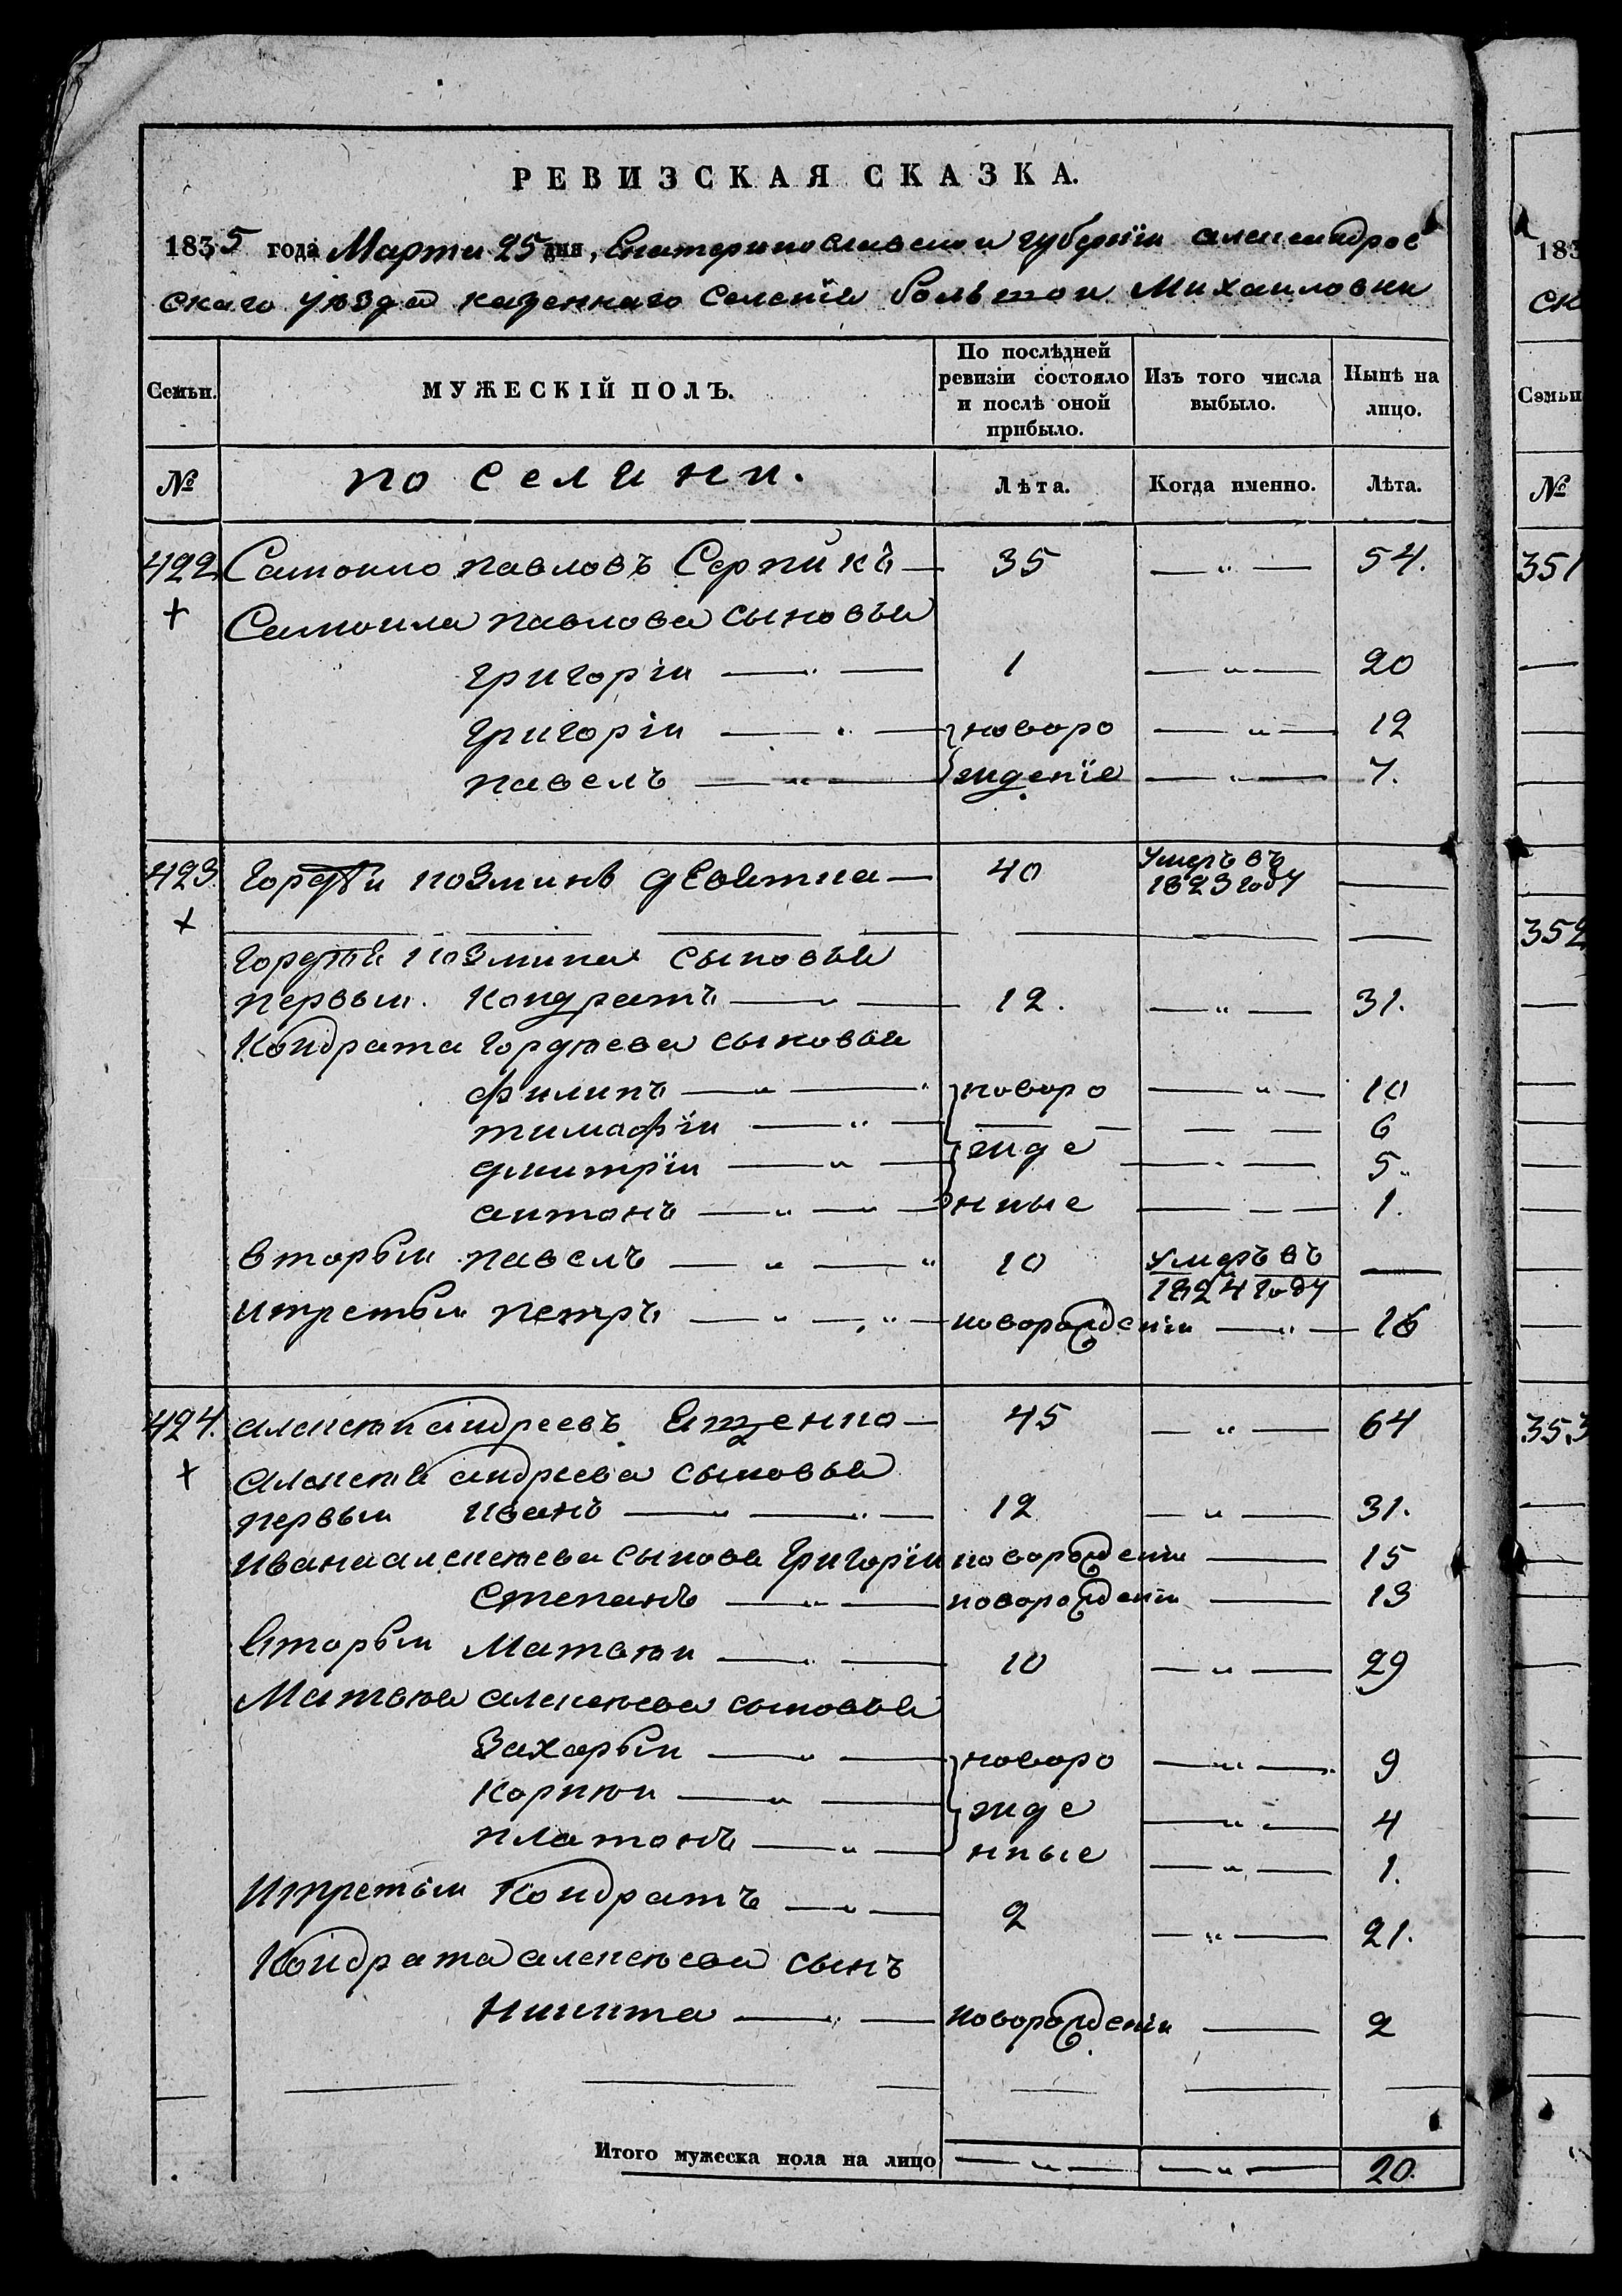 РЕВИЗСКАЯ СКАЗКА.
1835 года Марта 25 дня, Екатеринославской губернiи александров
скаго уѣзда казеннаго Селенiя большой Михайловки
Семьи. МУЖЕСКIЙ ПОЛЪ. По послѣдней ревизiи состояло и послѣ оной прибыло. Изъ того числа выбыло. Нынѣ на лицо.
№ поселяни. Лѣта. Когда именно. Лѣта.
422 Самоило павловъ Серпикъ — 35 — „ — 54.
+ Самоила павлова сыновья
григорiи — „ — 1 — „ — 20
григорiи — „ — новоро — „ — 12
павелъ — „ — жденiе — „ — 7.
423. гордѣи козминъ девятка — 40 Умеръ въ 1823 году —
+
гордѣя козмина сыновья
первыи. кондратъ — „ — 12. — „ — 31.
Кондрата гордѣева сыновья
филипъ — „ — новоро — „ — 10
тимофiи — „ — 6
дмитрiи — „ — жде — „ — 5.
антонъ — „ — „ — нные — 1.
вторыи павелъ — „ — „ 10 Умеръ въ 1824 году —
итретьи петръ — „ — „ — новорожденiи — „ — 16
424. алексѣи андреевъ ященко — 45 — „ — 64
+ алексѣя андреева сыновья
первыи иванъ — „ — „ — 12 — „ — 31.
ивана алексѣева сынове григорiи новорожденiи — 15
степанъ — „ — новорожденiи — 13
вторыи Матвѣи — „ — 10 — „ — 29
Матвѣя алексѣева сыновья
Захарыи — „ — новоро — „ — 9
корнѣи — „ — жде — „ — 4
платонъ — „ — нные — „ — 1.
итретьи Кондратъ — „ — 2 — „ — 21.
Кондрата алексѣева сынъ
никита — „ — новорожденiи — 2
Итого мужеска пола на лицо — „ — — „ — 20.
183
ск
Семьи
№
351
352
353